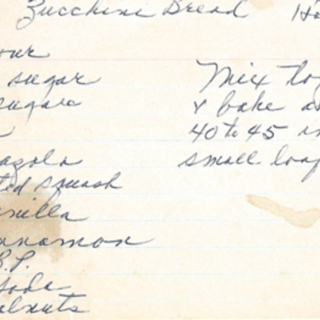 Zucchini Bread Ho
our
sugar
sugar
azola
ted squash
nilla
nnamon
B.P.
Soda
alnuts
Mix tog
& bake a
40 to 45 m
small loaf